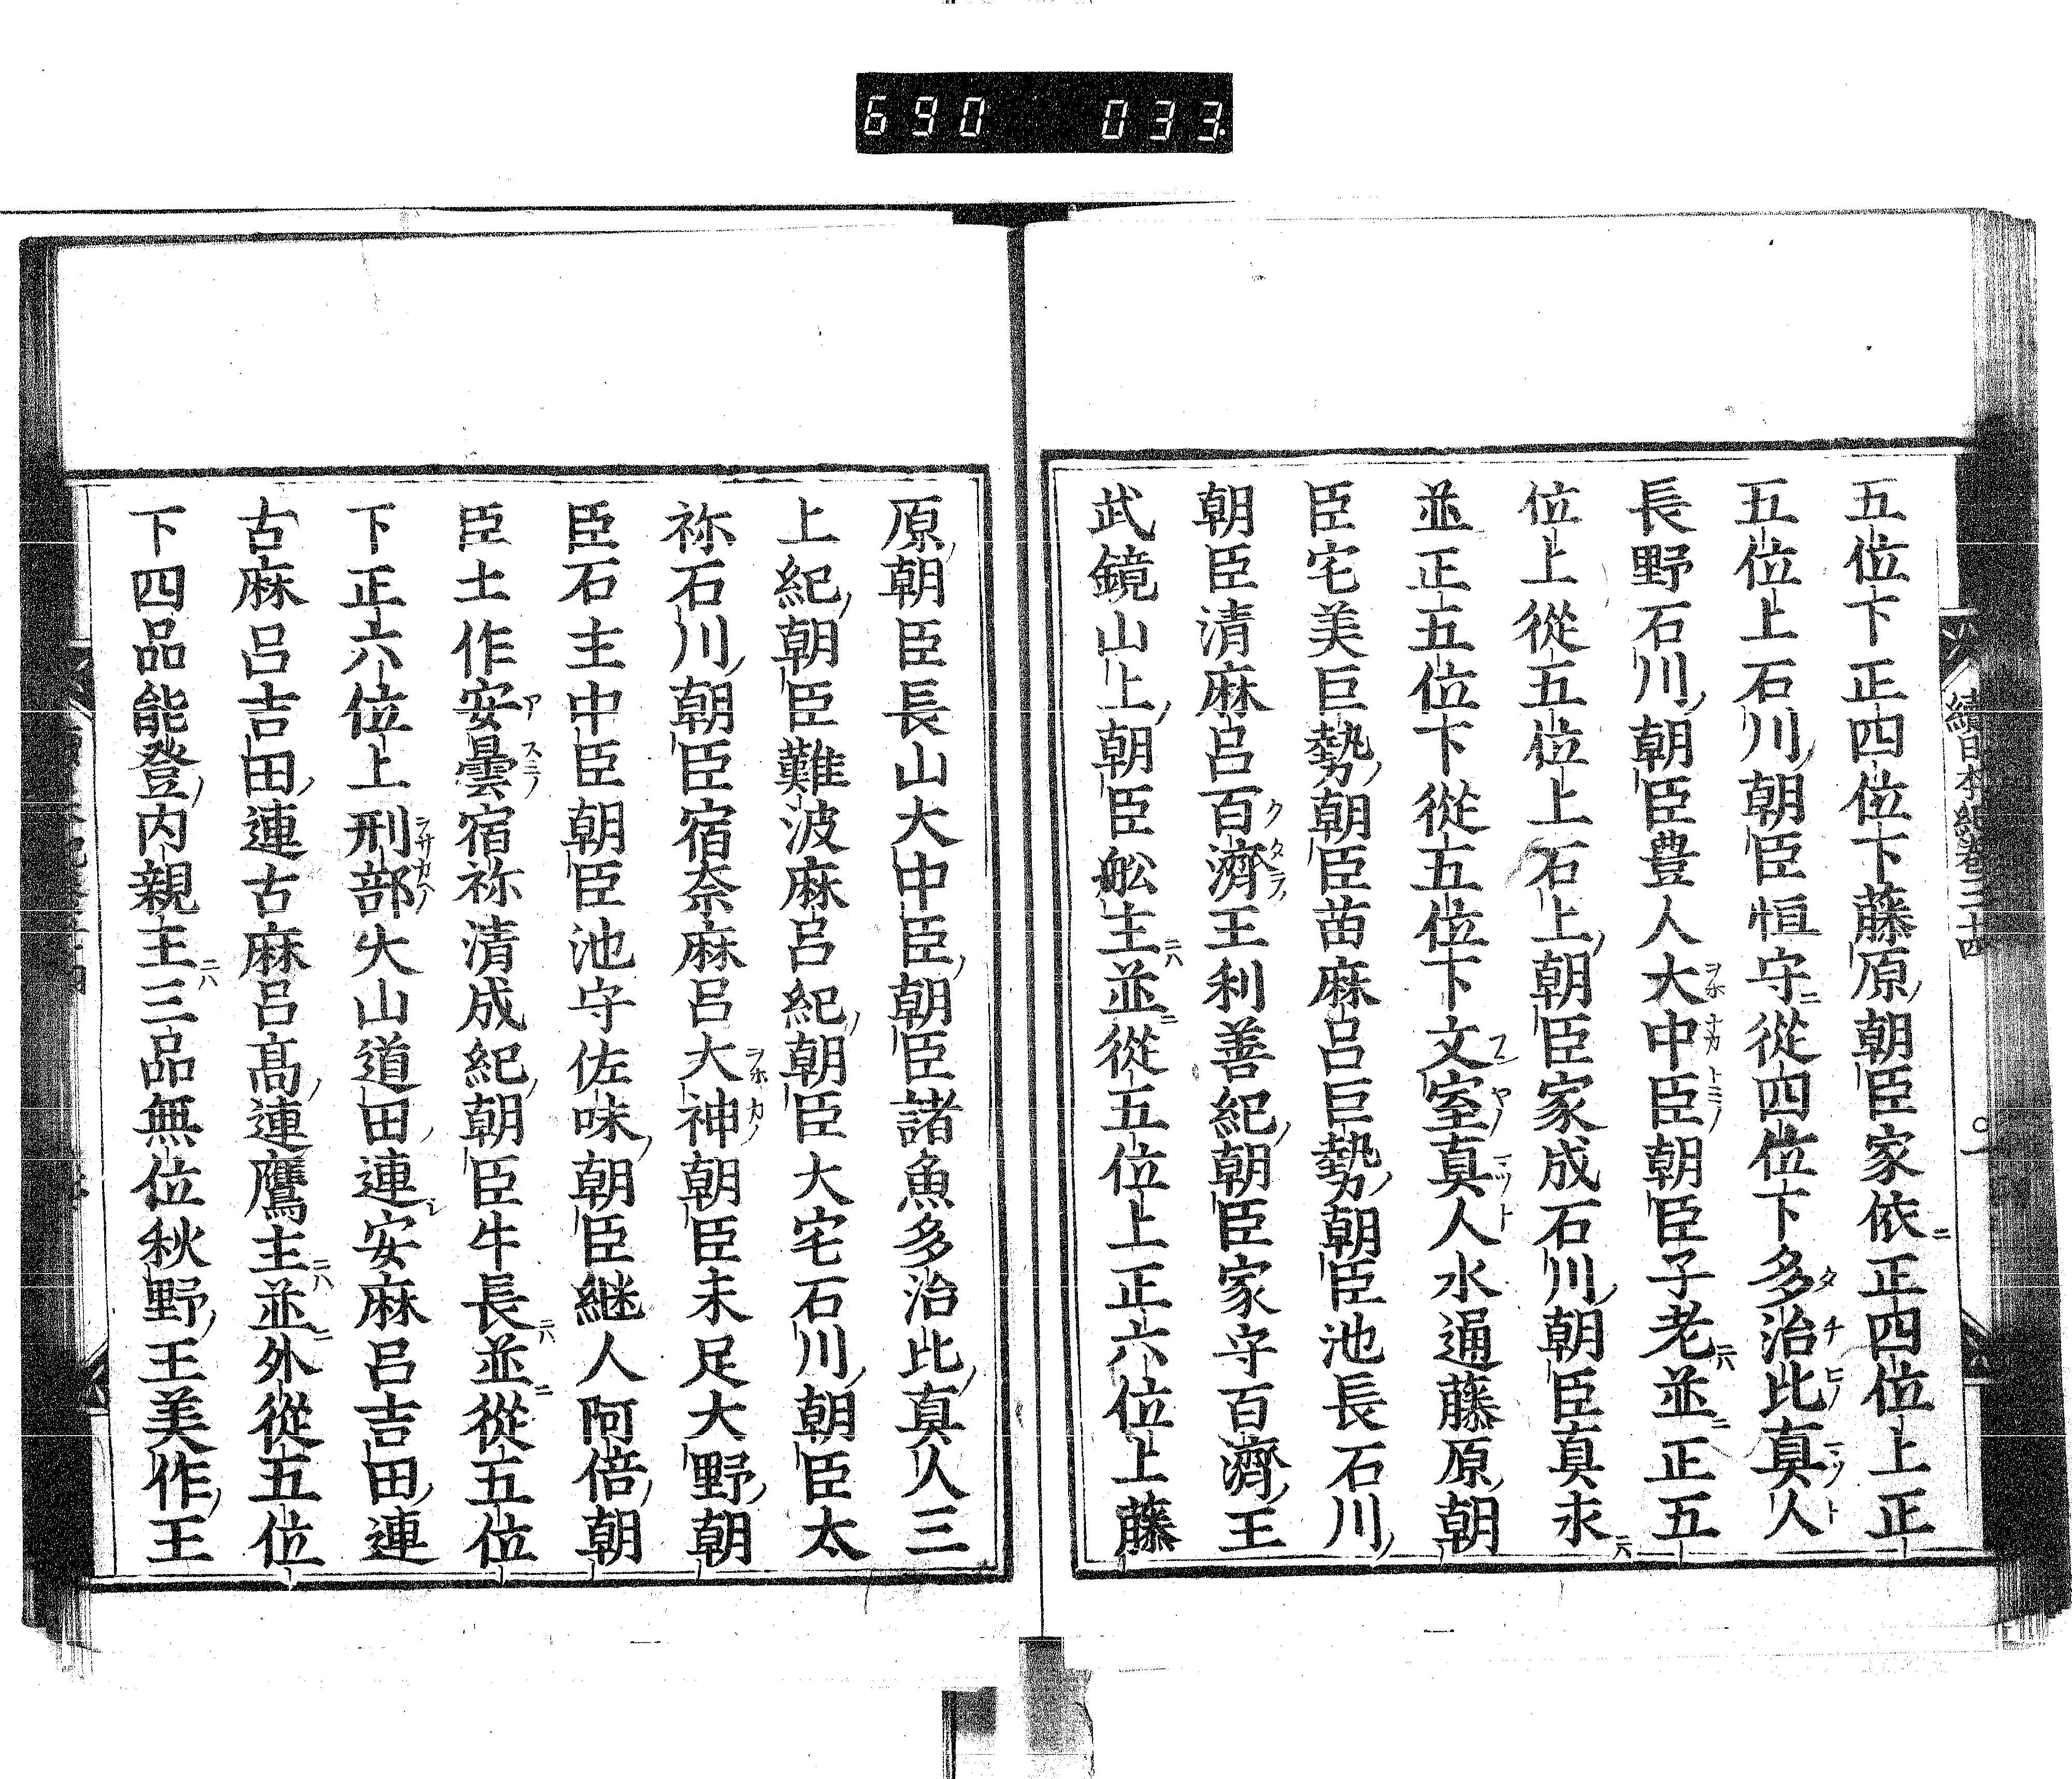 690 033
續日本紀卷三十四
五位下正四位下藤原朝臣家依正四位上正
五位上石川朝臣恒守從四位下多治比真人
長野石川朝臣豊人大中臣朝臣子老並正五
位上從五位上石上朝臣家成石川朝臣真永
並正五位下從五位下文室真人水通藤原朝
臣宅美巨勢朝臣苗麻呂巨勢朝臣池長石川
朝臣清麻呂百濟王利善紀朝臣家守百濟王
武鏡山上朝臣舩主並從五位上正六位上藤
原朝臣長山大中臣朝臣諸魚多治比真人三
上紀朝臣難波麻呂紀朝臣大宅石川朝臣太
祢石川朝臣宿奈麻呂大神朝臣末足大野朝
臣石主中臣朝臣池守佐味朝臣継人阿倍朝
臣土作安曇宿祢清成紀朝臣牛長並從五位
下正六位上刑部大山道田連安麻呂吉田連
古麻呂吉田連古麻呂高連鷹主並外從五位
下四品能登内親王三品無位秋野王美作王